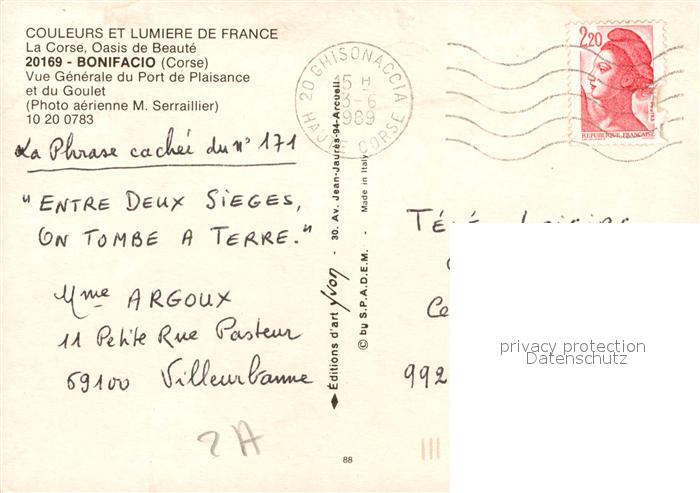 COULEURS ET LUMIERE DE FRANCE
La Corse, Oasis de Beauté
20169 - BONIFACIO (Corse)
Vue Générale du Port de Plaisance
et du Goulet
(Photo aérienne M. Serraillier)
10 20 0783
20 GHISONACCIA
15 H
3-6
1989
HAUTE CORSE
2,20
REPUBLIQUE FRANÇAISE
La Phrase cachée du n° 171
"ENTRE DEUX SIEGES,
ON TOMBE A TERRE."
Mme ARGOUX
11 Petite Rue Pasteur
69100 Villeurbanne
Éditions d'art Yvon - 30. Av. Jean-Jaurès-94-Arcueil
© by S.P.A.D.E.M. - Made in Italy
TÉLÉ Loisirs
Ce
992
privacy protection
Datenschutz
2A
88